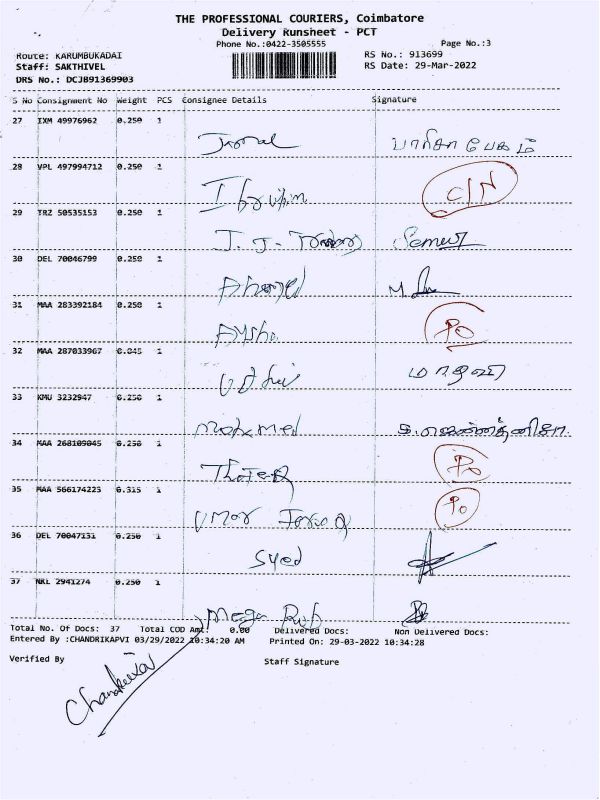 THE PROFESSIONAL COURIERS, Coimbatore
Delivery Runsheet - PCT
Phone No.:0422-3505555
Page No.:3
Route: KARUMBUKADAI
RS No.: 913699
Staff: SAKTHIVEL
RS Date: 29-Mar-2022
DRS No.: DCJB91369903
S No Consignment No Weight PCS Consignee Details Signature
27 IXM 49976962 0.250 1
Jamal
28 VPL 497994712 0.250 1
Ibrahim C/N
29 TRZ 50535153 0.250 1
J. J. -
30 DEL 70046799 0.250 1
M.
31 MAA 283392184 0.250 1
Aysha PO
32 MAA 287033967 0.045 1
33 KMU 3232947 0.250 1
Mohamed
34 MAA 268109045 0.250 1
PO
35 MAA 566174223 0.315 1
Umar Farooq PO
36 DEL 70047131 0.250 1
Syed
37 NKL 2941274 0.250 1
Mega Rub
Total No. Of Docs: 37 Total COD Amt: 0.00 Delivered Docs: Non Delivered Docs:
Entered By :CHANDRIKAPVI 03/29/2022 10:34:20 AM Printed On: 29-03-2022 10:34:28
Verified By Staff Signature